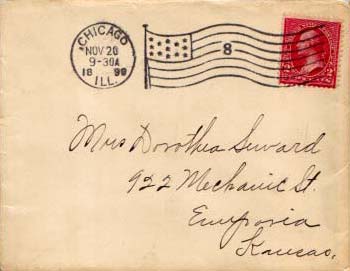 CHICAGO
NOV 20
9-30A
18 99
ILL.
8
2 2
Mrs Dorothea Seward
922 Mechanic St.
Emporia
Kansas.